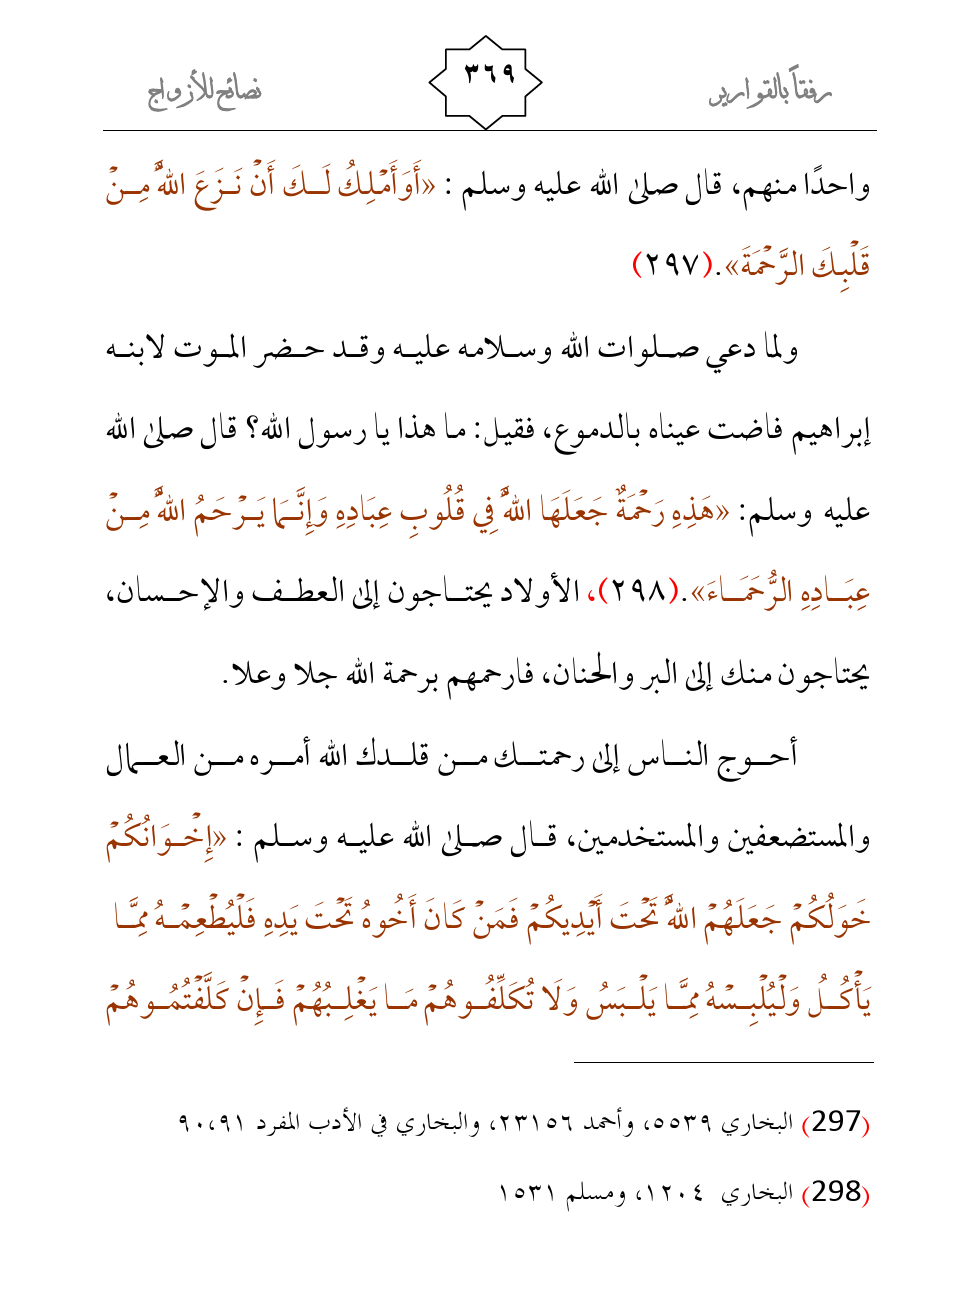 رفقاً بالقوارير
٣٦٩
نصائح للأزواج
واحدًا منهم، قال صلىٰ الله عليه وسلم : «أَوَأَمْلِكُ لَكَ أَنْ نَزَعَ اللهُ مِنْ
قَلْبِكَ الرَّحْمَةَ».(٢٩٧)
ولما دعي صلوات الله وسلامه عليه وقد حضر الموت لابنه
إبراهيم فاضت عيناه بالدموع، فقيل: ما هذا يا رسول الله؟ قال صلىٰ الله
عليه وسلم: «هَذِهِ رَحْمَةٌ جَعَلَهَا اللهُ فِي قُلُوبِ عِبَادِهِ وَإِنَّمَا يَرْحَمُ اللهُ مِنْ
عِبَادِهِ الرُّحَمَاءَ».(٢٩٨)، الأولاد يحتاجون إلىٰ العطف والإحسان،
يحتاجون منك إلىٰ البر والحنان، فارحمهم برحمة الله جلا وعلا.
أحوج الناس إلىٰ رحمتك من قلدك الله أمره من العمال
والمستضعفين والمستخدمين، قال صلىٰ الله عليه وسلم : «إِخْوَانُكُمْ
خَوَلُكُمْ جَعَلَهُمْ اللهُ تَحْتَ أَيْدِيكُمْ فَمَنْ كَانَ أَخُوهُ تَحْتَ يَدِهِ فَلْيُطْعِمْهُ مِمَّا
يَأْكُلُ وَلْيُلْبِسْهُ مِمَّا يَلْبَسُ وَلَا تُكَلِّفُوهُمْ مَا يَغْلِبُهُمْ فَإِنْ كَلَّفْتُمُوهُمْ
(297) البخاري ٥٥٣٩، وأحمد ٢٣١٥٦، والبخاري في الأدب المفرد ٩٠،٩١
(298) البخاري ١٢٠٤، ومسلم ١٥٣١